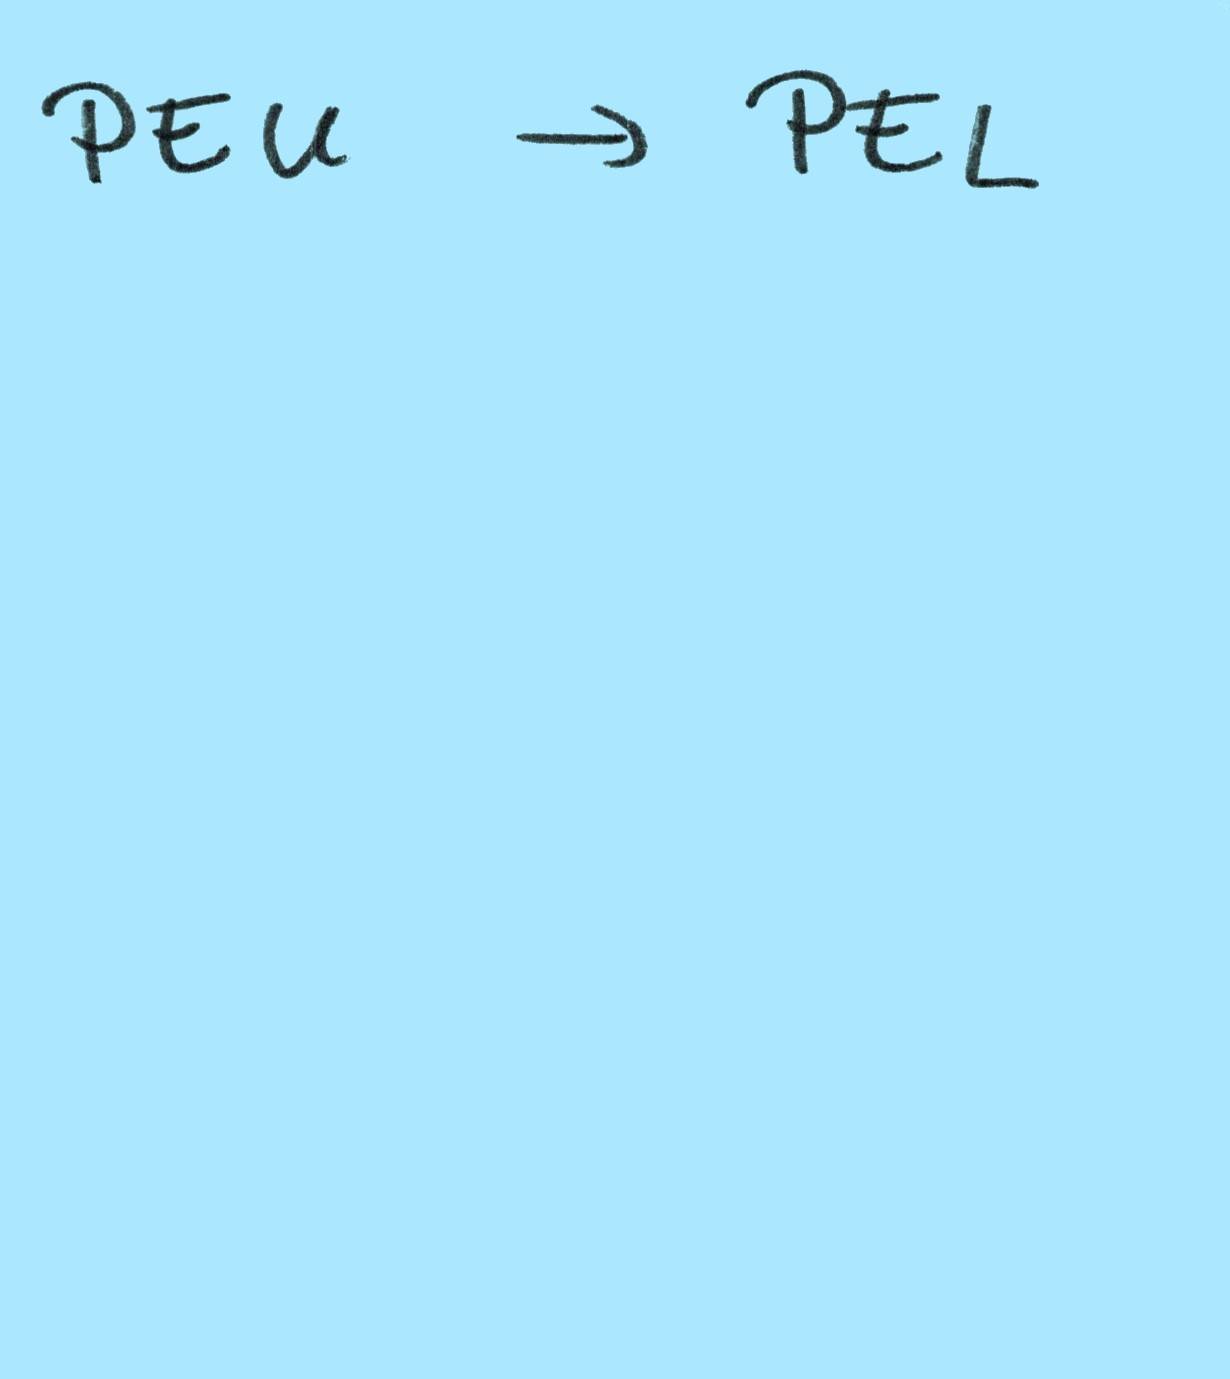 PEU → PEL